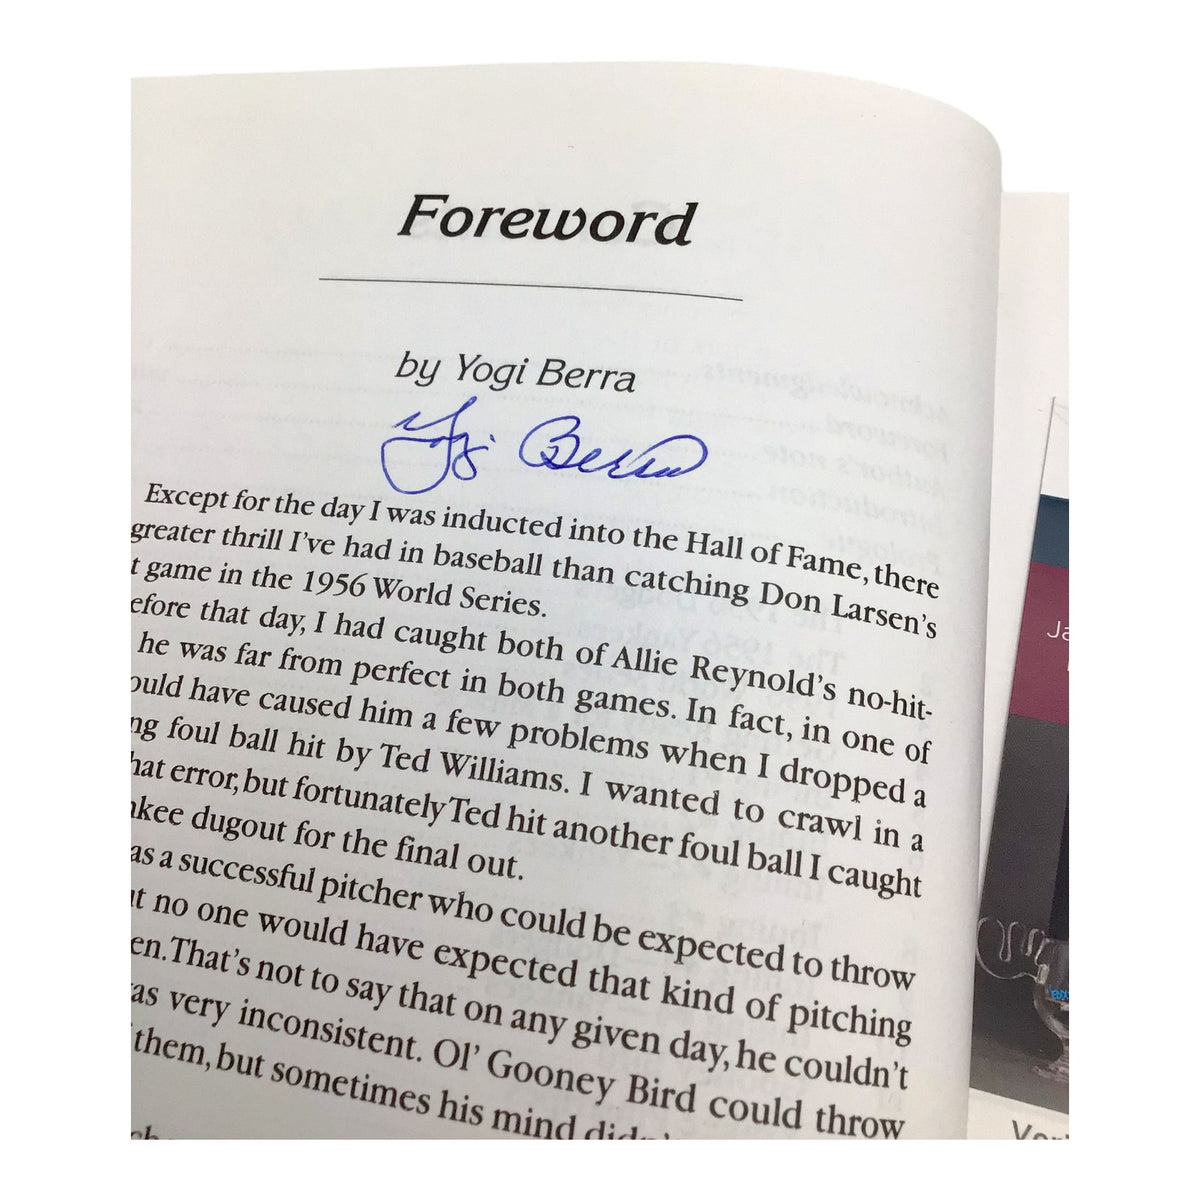 Foreword
by Yogi Berra
Yogi Berra
Except for the day I was inducted into the Hall of Fame, there
greater thrill I've had in baseball than catching Don Larsen's
t game in the 1956 World Series.
efore that day, I had caught both of Allie Reynold's no-hit-
he was far from perfect in both games. In fact, in one of
ould have caused him a few problems when I dropped a
ng foul ball hit by Ted Williams. I wanted to crawl in a
hat error, but fortunately Ted hit another foul ball I caught
nkee dugout for the final out.
as a successful pitcher who could be expected to throw
ut no one would have expected that kind of pitching
en. That's not to say that on any given day, he couldn't
as very inconsistent. Ol' Gooney Bird could throw
them, but sometimes his mind didn'